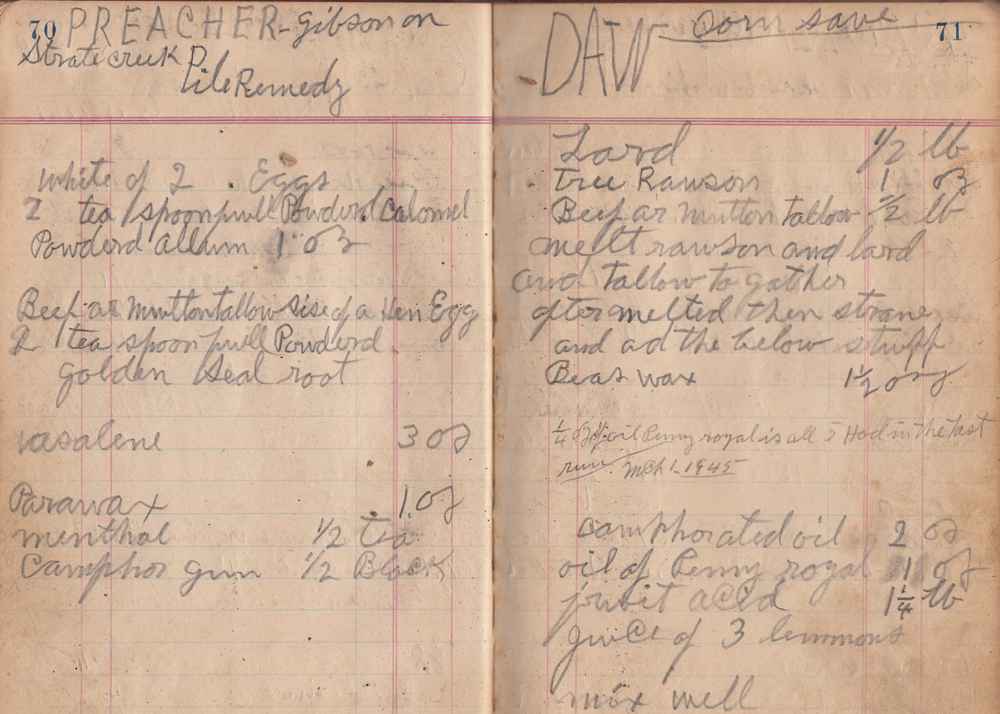 70
PREACHER - Gibson on
Strate creek
Pile Remedy
white of 2 Eggs
2 tea spoonfull Powderd Calomel
Powderd Allum 1 oz
Beef ar muttontallow sise of a Hen Egg
2 tea spoonfull Powderd
golden Seal root
vasalene 3 oz
Parawax 1 oz
menthol 1/2 tea
Camphor gum 1/2 Block
71
DAW corn save
Lard 1/2 lb
tree Rawson 1 oz
Beef ar mutton tallow 1/2 lb
mellt rawson and lard
and tallow to gather
after melted then strane
and ad the below stuff
Beas wax 1 1/2 ozs
1/4 oz oil Penny royal is all I Had in the last
run. Mch 1 1945
camphorated oil 2 oz
oil of Penny royal 1 oz
fruit acid 1 1/4 lb
guice of 3 lemmons
mix well